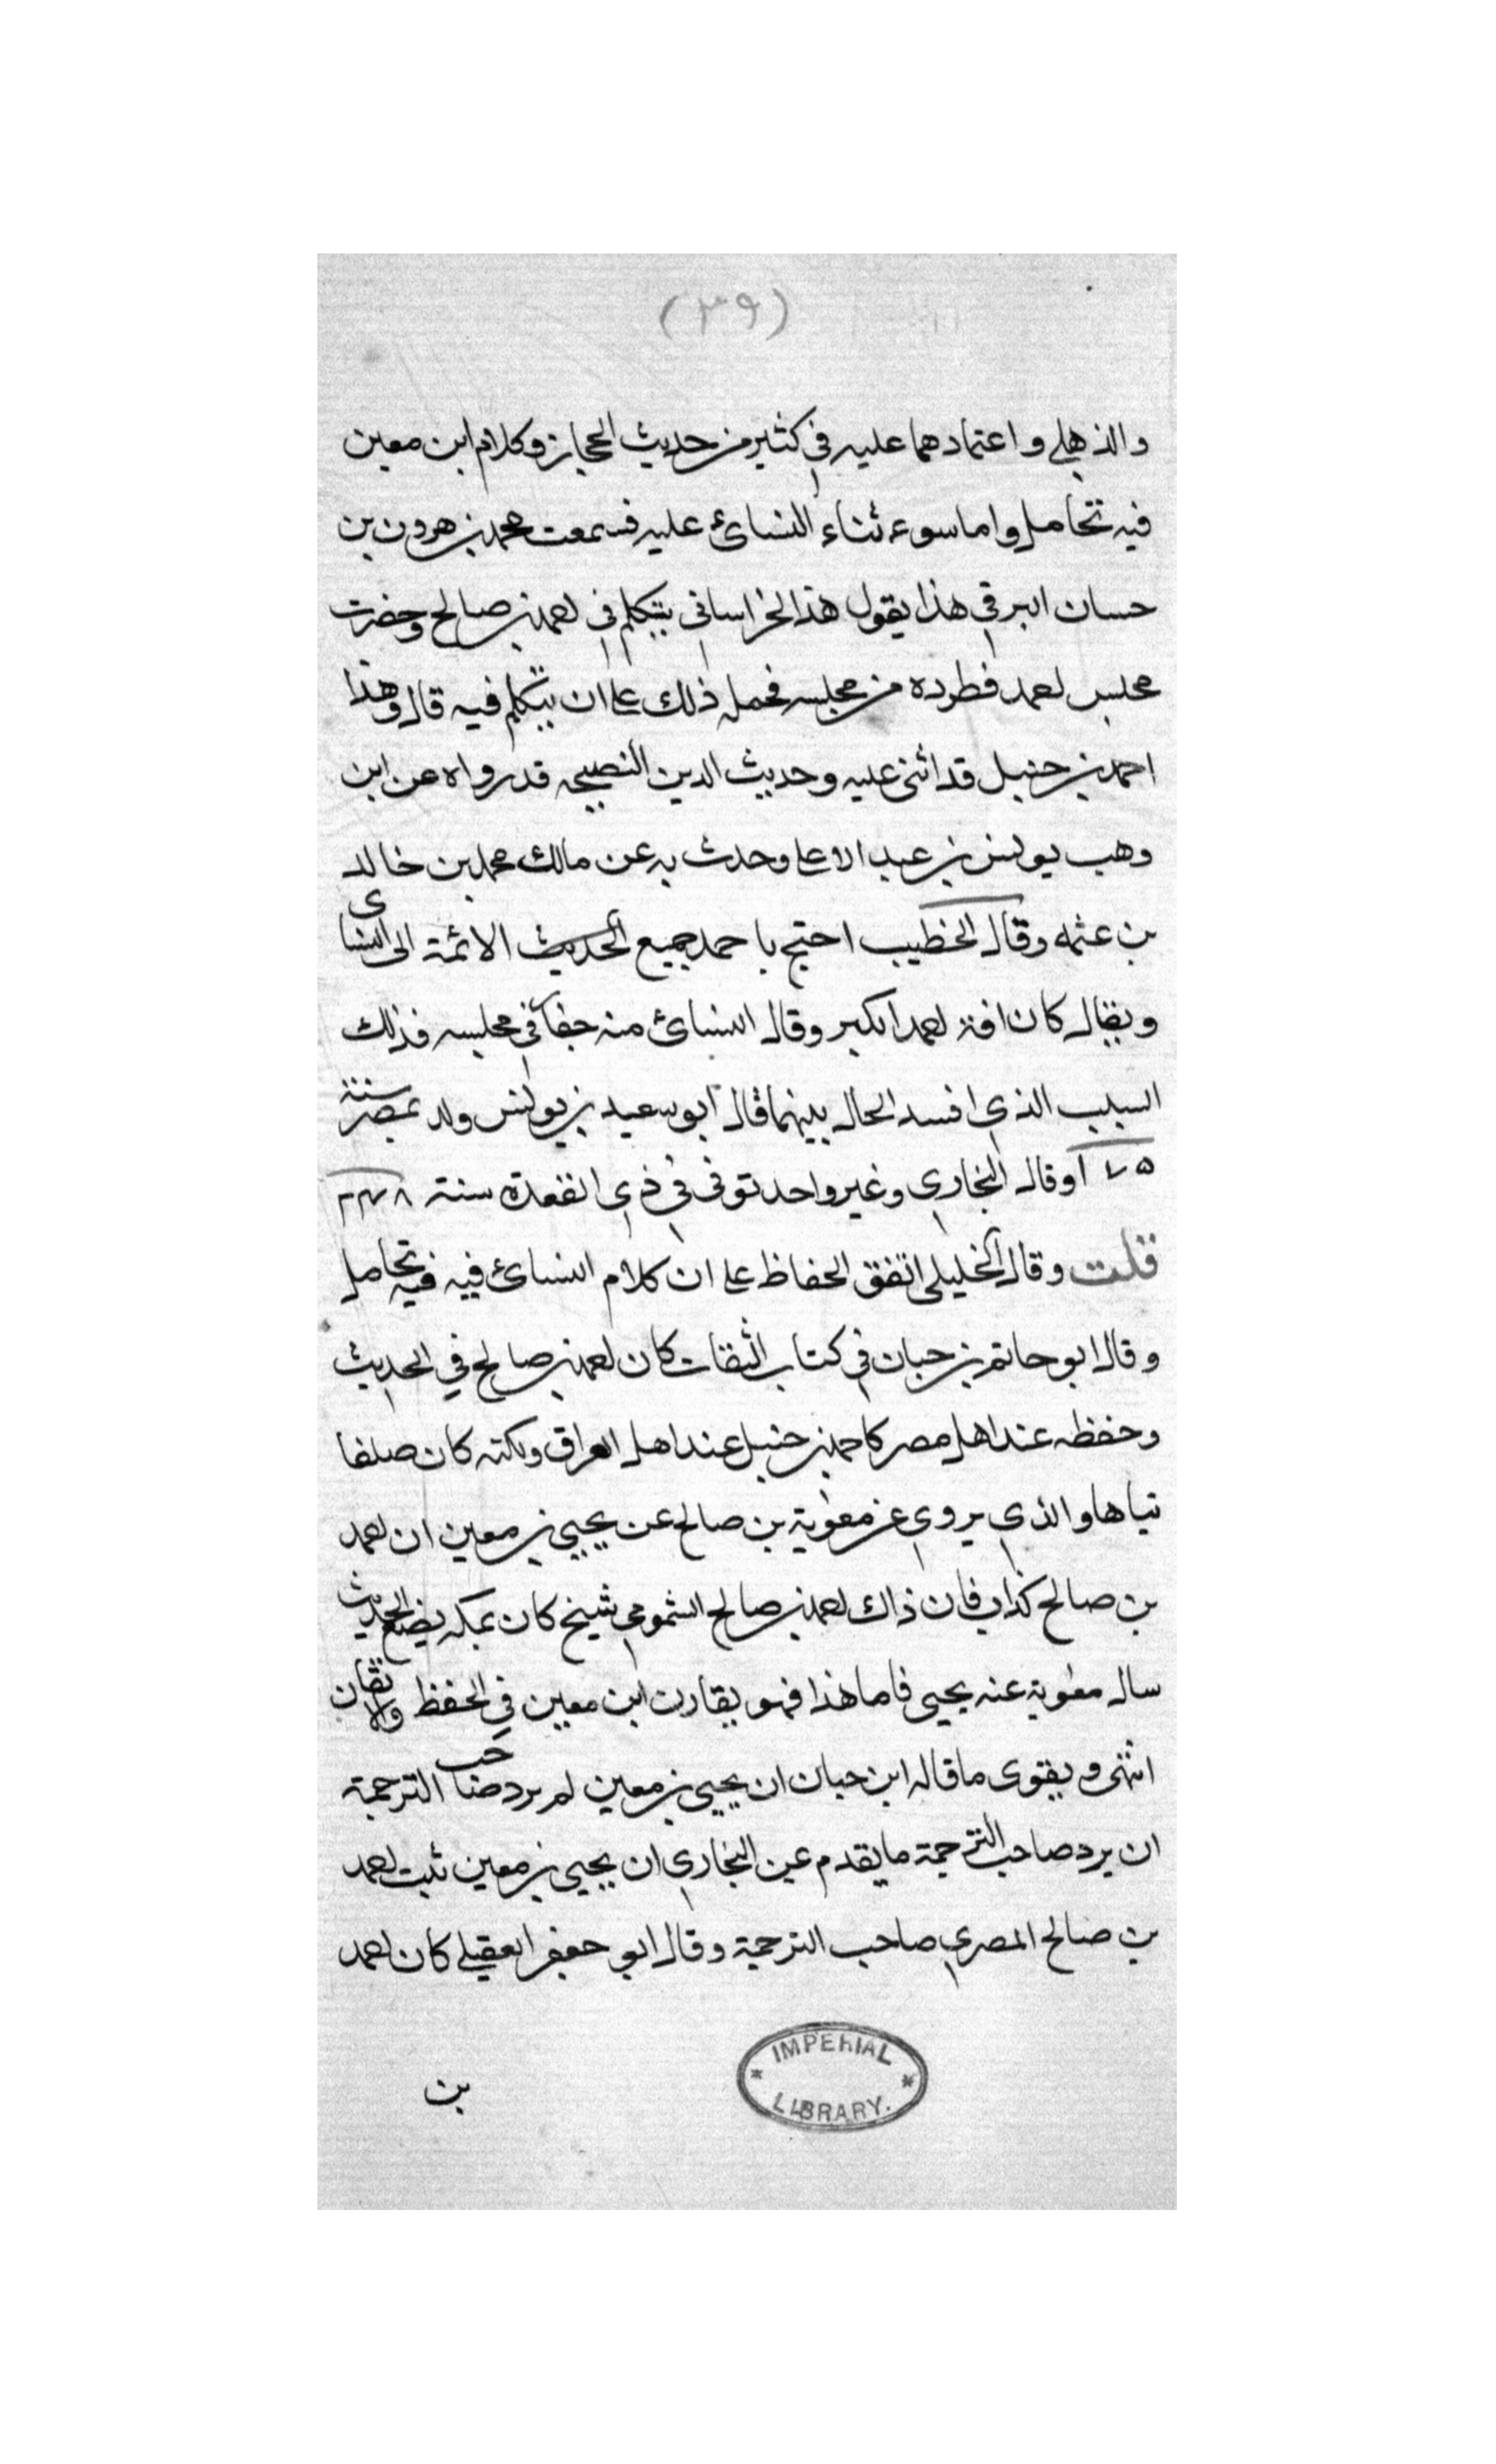 (٣٩)
والذهلي واعتمادهما عليه في كثير من حديث الحجاز وكلام ابن معين
فيه تحامل واما سوء ثناء النسائ عليه فسمعت محمد بن هرون بن
حسان البرقي هذا يقول هذا الخراساني يتكلم في احمد بن صالح وحضرت
مجلس احمد فطرده من مجلسه فحمله ذلك على ان يتكلم فيه قال وهذا
احمد بن حنبل قد اثنى عليه وحديث الدين النصيحه قد رواه عن ابن
وهب يونس بن عبد الاعلى وحدث به عن مالك محمد بن خالد
بن عثمه وقال الخطيب احتج باحمد جميع الحديث الائمة الى النسائ
ويقال كان افة احمد الكبر وقال النسائ منه جفآ في مجلسه فذلك
السبب الذي افسد الحال بينهما قال ابو سعيد بن يونس ولد بمصر سنة
١٧٥ وقال البخاري وغير واحد توفى في ذي القعدة سنة ٢٤٨
قلت وقال الخليلى اتفق الحفاظ على ان كلام النسائ فيه فيه تحامل
وقال ابو حاتم بن حبان في كتاب الثقات كان احمد بن صالح في الحديث
وحفظه عند اهل مصر كاحمد بن حنبل عند اهل العراق ولكنه كان صلفا
تياها والذي يروي عن معوية بن صالح عن يحيى بن معين ان احمد
بن صالح كذاب فان ذاك احمد بن صالح الشمومي شيخ كان بمكه يضع الحديث
سال معوية عنه يحيى فاما هذا فهو يقارن ابن معين في الحفظ والاتقان
انتهى ويقوى ما قاله ابن حبان ان يحيى بن معين لم يرد صاحب الترجمة
ان يرد صاحب الترجمة ما يقدم عن البخاري ان يحيى بن معين ثبت احمد
بن صالح المصري صاحب الترجمة وقال ابو جعفر العقيلي كان احمد
بن
IMPERIAL
LIBRARY.